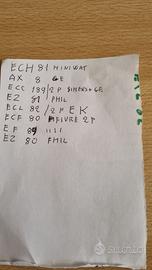 ECH 81 MINIWAT
AX 8 GE
ECC 189/2P SIMENS+GE
EZ 81 PHIL
ECL 82 / 2P EK
ECF 80 FIVRE 2P
EF
EZ 80 PHIL
subito